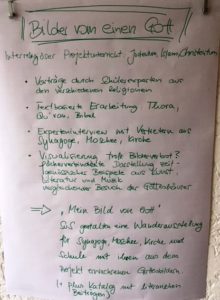 Bilder von einem Gott
Interreligiöser Projektunterricht Judentum, Islam, Christentum
• Vorträge durch Schülerexperten aus
den verschiedenen Religionen
• Textbasierte Erarbeitung Thora,
Qu'ran, Bibel
• Experteninterview mit Vertretern aus
Synagoge, Moschee, Kirche
• Visualisierung trotz Bilderverbot?
Darstellung
Beispiele aus Kunst,
Literatur und Musik
vergleichender Besuch der Gotteshäuser
⇒ "Mein Bild von Gott"
SuS gestalten eine Wanderausstellung
für Synagoge, Moschee, Kirche und
Schule mit ihren aus dem
Projekt erwachsenen Gottesbildern.
(+ Plus Katalog mit literarischen
Beiträgen)